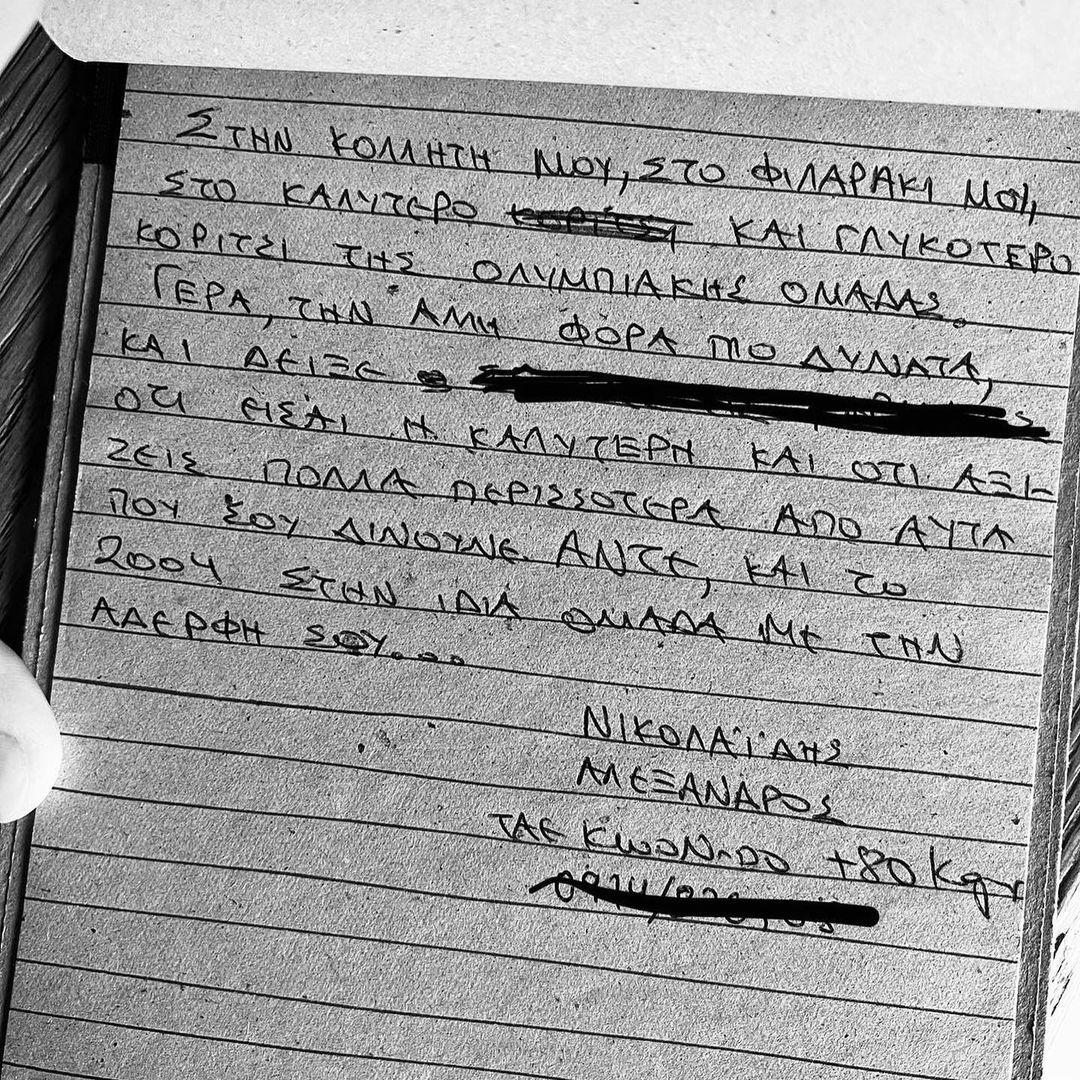 ΣΤΗΝ ΚΟΛΛΗΤΗ ΜΟΥ, ΣΤΟ ΦΙΛΑΡΑΚΙ ΜΟΥ,
ΣΤΟ ΚΑΛΥΤΕΡΟ ΚΑΙ ΓΛΥΚΟΤΕΡΟ
ΚΟΡΙΤΣΙ ΤΗΣ ΟΛΥΜΠΙΑΚΗΣ ΟΜΑΔΑΣ.
ΓΕΡΑ, ΤΗΝ ΑΛΛΗ ΦΟΡΑ ΠΙΟ ΔΥΝΑΤΑ,
ΚΑΙ ΔΕΙΞΕ
ΟΤΙ ΕΙΣΑΙ Η ΚΑΛΥΤΕΡΗ ΚΑΙ ΟΤΙ ΑΞΙ-
ΖΕΙΣ ΠΟΛΛΑ ΠΕΡΙΣΣΟΤΕΡΑ ΑΠΟ ΑΥΤΑ
ΠΟΥ ΣΟΥ ΔΙΝΟΥΝΕ. ΑΝΤΕ, ΚΑΙ ΤΟ
2004 ΣΤΗΝ ΙΔΙΑ ΟΜΑΔΑ ΜΕ ΤΗΝ
ΑΔΕΡΦΗ ΣΟΥ...
ΝΙΚΟΛΑΪΔΗΣ
ΑΛΕΞΑΝΔΡΟΣ
TAE KWON-DO +80 Kgr